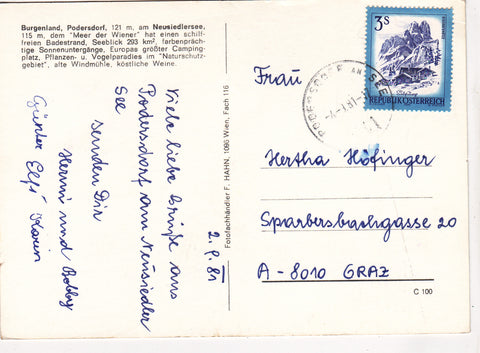 Burgenland, Podersdorf, 121 m, am Neusiedlersee,
115 m, dem "Meer der Wiener" hat einen schilf-
freien Badestrand, Seeblick 293 km², farbenpräch-
tige Sonnenuntergänge, Europas größter Camping-
platz, Pflanzen- u. Vogelparadies im "Naturschutz-
gebiet", alte Windmühle, köstliche Weine.
2. 9. 81
Viele liebe Grüße aus
Podersdorf am Neusiedler
See
senden Dir
Hermi und Bobby
Günter Elfi Karin
Fotofachhändler F. HAHN, 1086 Wien, Fach 116
3S
REPUBLIK ÖSTERREICH
PODERSDORF AM SEE
Frau
Hertha Höfinger
Sparbersbachgasse 20
A - 8010 GRAZ
C 100